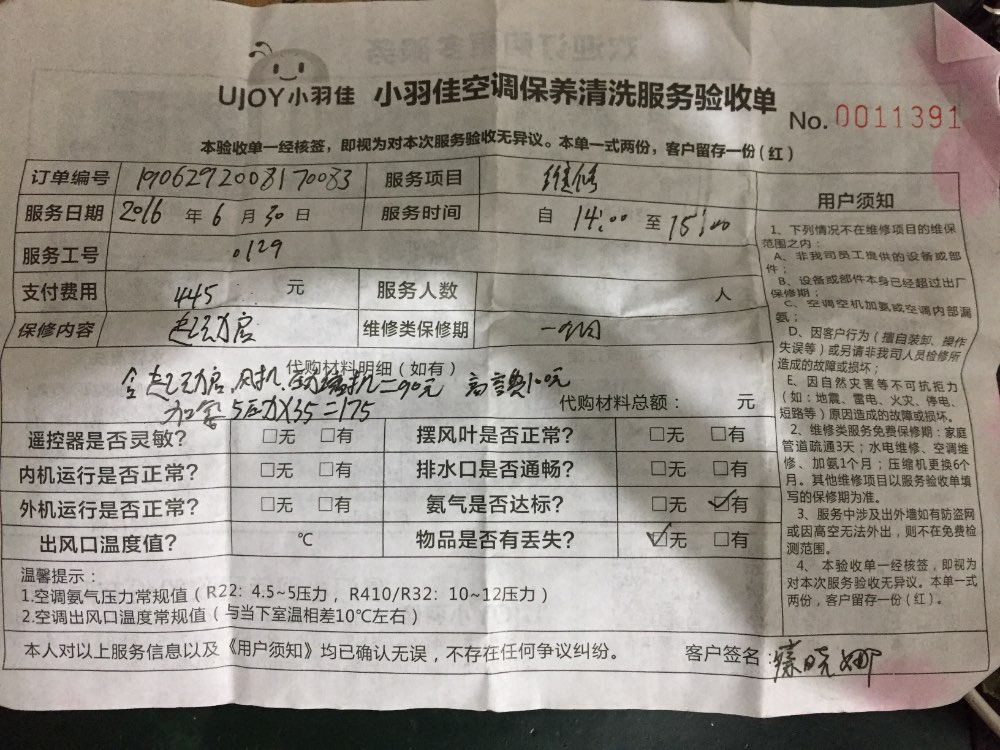 UJOY小羽佳 小羽佳空调保养清洗服务验收单
No. 0011391
本验收单一经核签，即视为对本次服务验收无异议。本单一式两份，客户留存一份(红)
订单编号 1906292008170083 服务项目 维修
服务日期 2016 年 6 月 30 日 服务时间 自 14:00 至 15:00
服务工号 0129
支付费用 445 元 服务人数 人
保修内容 起动启 维修类保修期 一个月
代购材料明细(如有)
起动启,风机, 二90元 高 100元
加 5压力X35=175
代购材料总额： 元
遥控器是否灵敏? □无 □有 摆风叶是否正常? □无 □有
内机运行是否正常? □无 □有 排水口是否通畅? □无 □有
外机运行是否正常? □无 □有 氨气是否达标? □无 ☑有
出风口温度值? ℃ 物品是否有丢失? ☑无 □有
温馨提示：
1.空调氨气压力常规值（R22: 4.5~5压力，R410/R32: 10~12压力）
2.空调出风口温度常规值（与当下室温相差10℃左右）
本人对以上服务信息以及《用户须知》均已确认无误，不存在任何争议纠纷。 客户签名:晓娜
用户须知
1、下列情况不在维修项目的维保
范围之内：
A、非我司员工提供的设备或部
件；
B、设备或部件本身已经超过出厂
保修期；
C、空调空机加氨或空调内部漏
氨；
D、因客户行为（擅自装卸、操作
失误等）或另请非我司人员检修所
造成的故障或损坏；
E、因自然灾害等不可抗拒力
（如：地震、雷电、火灾、停电、
短路等）原因造成的故障或损坏.
2、维修类服务免费保修期：家庭
管道疏通3天；水电维修、空调维
修、加氨1个月；压缩机更换6个
月。其他维修项目以服务验收单填
写的保修期为准。
3、服务中涉及出外墙如有防盗网
或因高空无法外出，则不在免费检
测范围。
4、本验收单一经核签，即视为
对本次服务验收无异议。本单一式
两份，客户留存一份(红)。